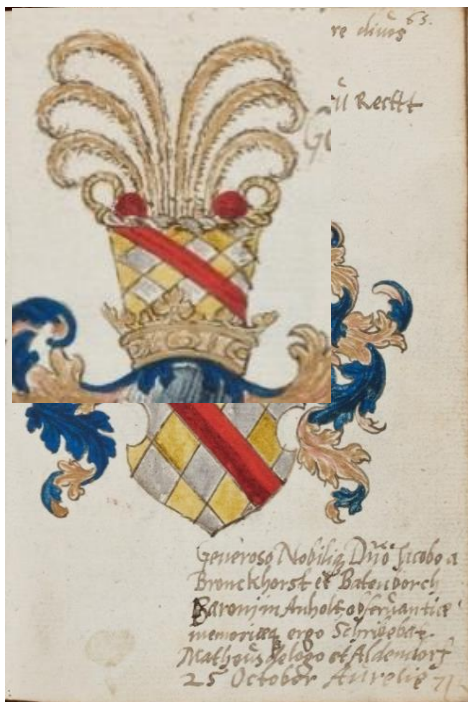 65.
re diuß
ü Rectt
Ge
Generoso Nobiliq Dnō Jacobo a
Bronckhorst et Batenborch
Baroni in Anholt obseruantiæ
memoriæq ergo Schribebat
Matheus et Aldendorf
25 October Aureliæ 71